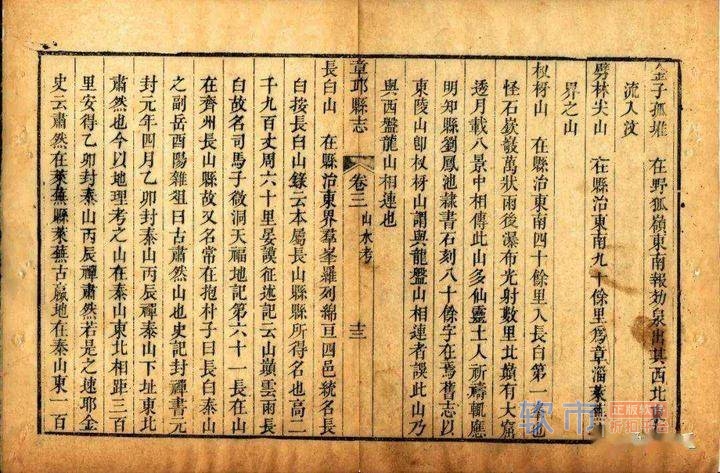 金子孤堆 在野狐嶺東南報劬泉出其西北
流入汶
劈林尖山 在縣治東南九十餘里爲章淄萊蕪
界之山
杈枒山 在縣治東南四十餘里入長白第一 也
怪石嵚巇萬狀雨後瀑布光射數里北巔有大窟
透月載八景中相傳此山多仙靈土人祈禱輒應
明知縣劉鳳池隸書石刻八十餘字在焉舊志以
東陵山卽杈枒山謂與龍盤山相連者誤此山乃
與西盤龍山相連也
章邱縣志 卷三 山水考 十三
長白山 在縣治東界羣峯羅列綿亘四邑統名長
白按長白山錄云本屬長山縣縣所得名也高二
千九百丈周六十里晏謨征述記云山巔雲雨長
白故名司馬子微洞天福地記第六十一長在山
在齊州長山縣故又名常在抱朴子曰長白泰山
之副岳酉陽雜俎曰古肅然山也史記封禪書元
封元年四月乙卯封泰山丙辰禪泰山下址東北
肅然也今以地理考之山在泰山東北相距三百
里安得乙卯封泰山丙辰禪肅然若是之速耶金
史云肅然在萊蕪縣萊蕪古嬴地在泰山東一百
软市
正版软件
折扣平台